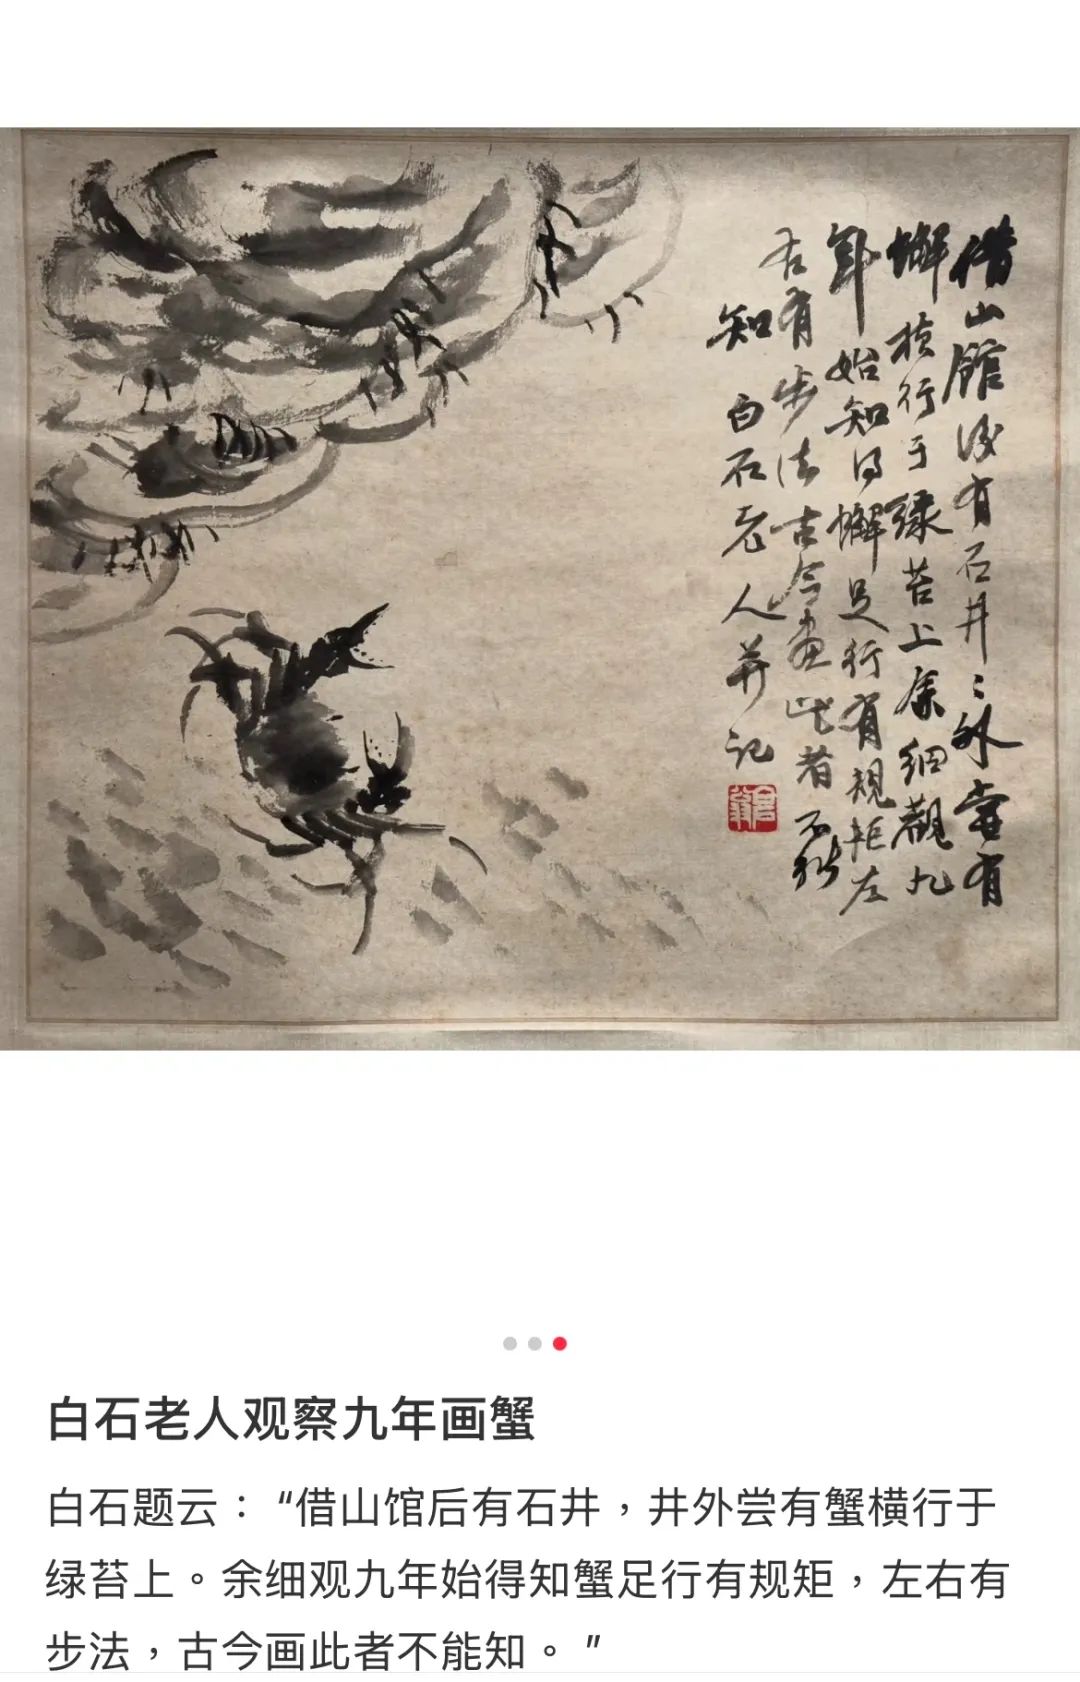 借山館後有石井〻外嘗有
蠏横行于緑苔上余細觀九
年始知得蠏足行有規矩左
右有步法古今畫此者不能
知 白石老人并記
白石老人观察九年画蟹
白石题云：“借山馆后有石井，井外尝有蟹横行于
绿苔上。余细观九年始得知蟹足行有规矩，左右有
步法，古今画此者不能知。”